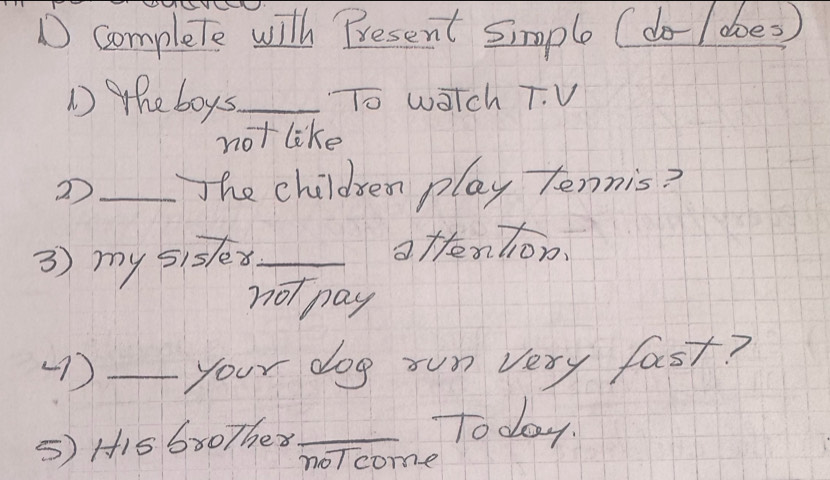 1) Complete with Present Simple (do / does)
1) The boys ____ To watch T.V
not like
2) ____ The children play Tennis?
3) my sister ____ attention.
not pay
4) ____ your dog run very fast?
5) His brother ____ Today.
not come